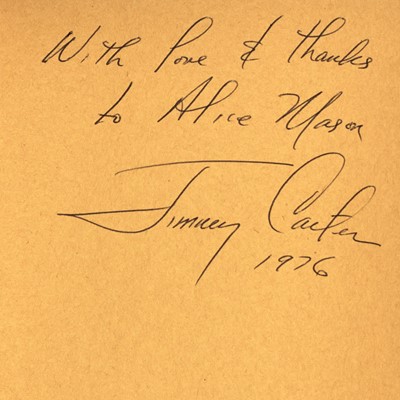 With love & thanks
to Alice Mason
Jimmy Carter
1976